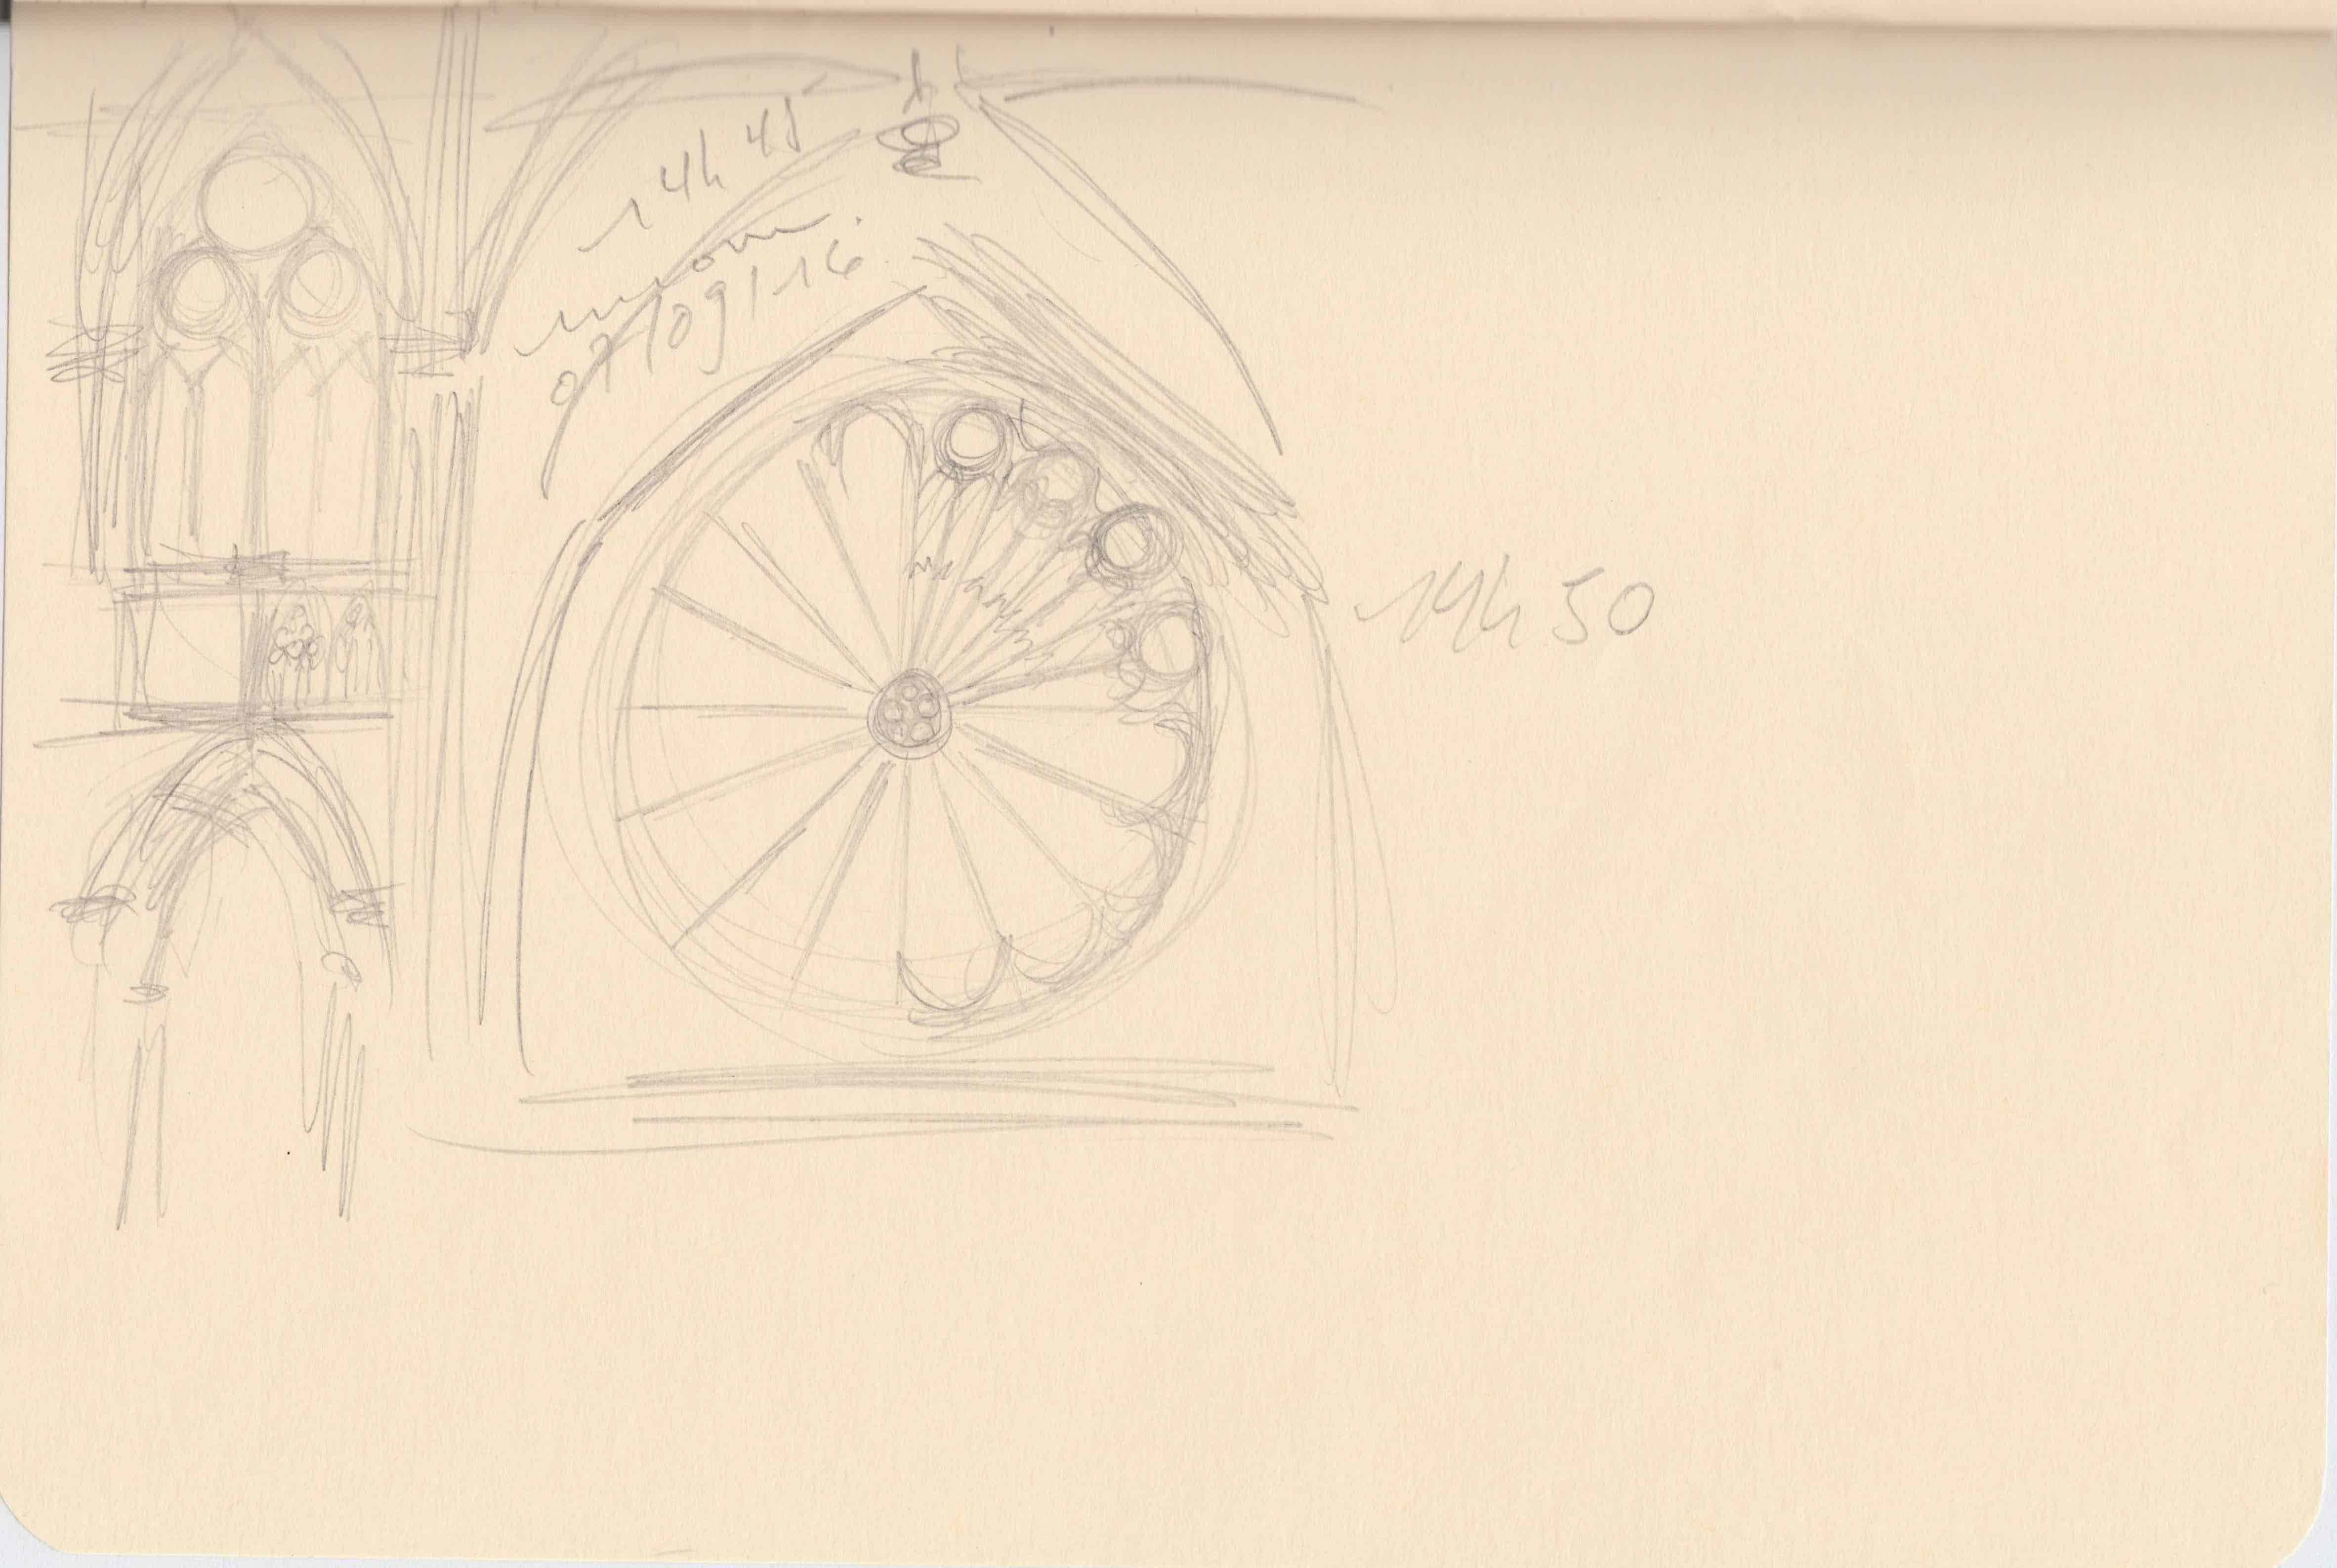 14h 48
07/09/16.
14h 50